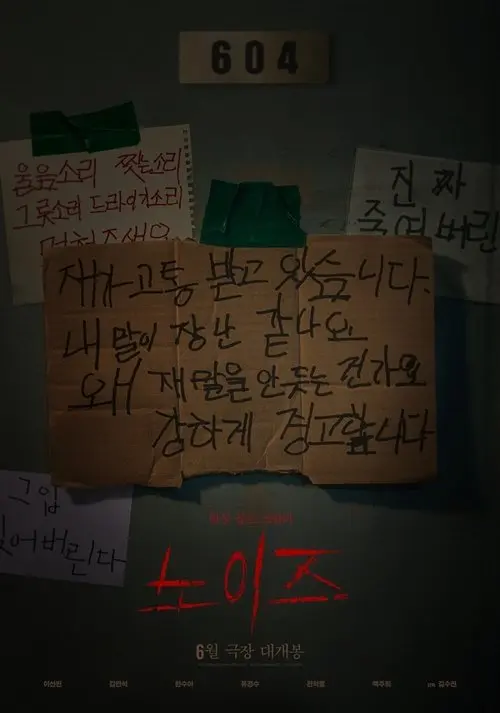 604
울음소리 찢는소리
그릇소리 드라이기소리
멈춰주세요
진짜
죽여버린
재가 고통 받고 있습니다.
내 말이 장난 같나요
왜 재말을 안듣는 건가요
강하게 경고합니다
그입
어버린다
노이즈
6월 극장 대개봉
이선빈 김민석 한수아 류경수 전익령 백주희 김수진